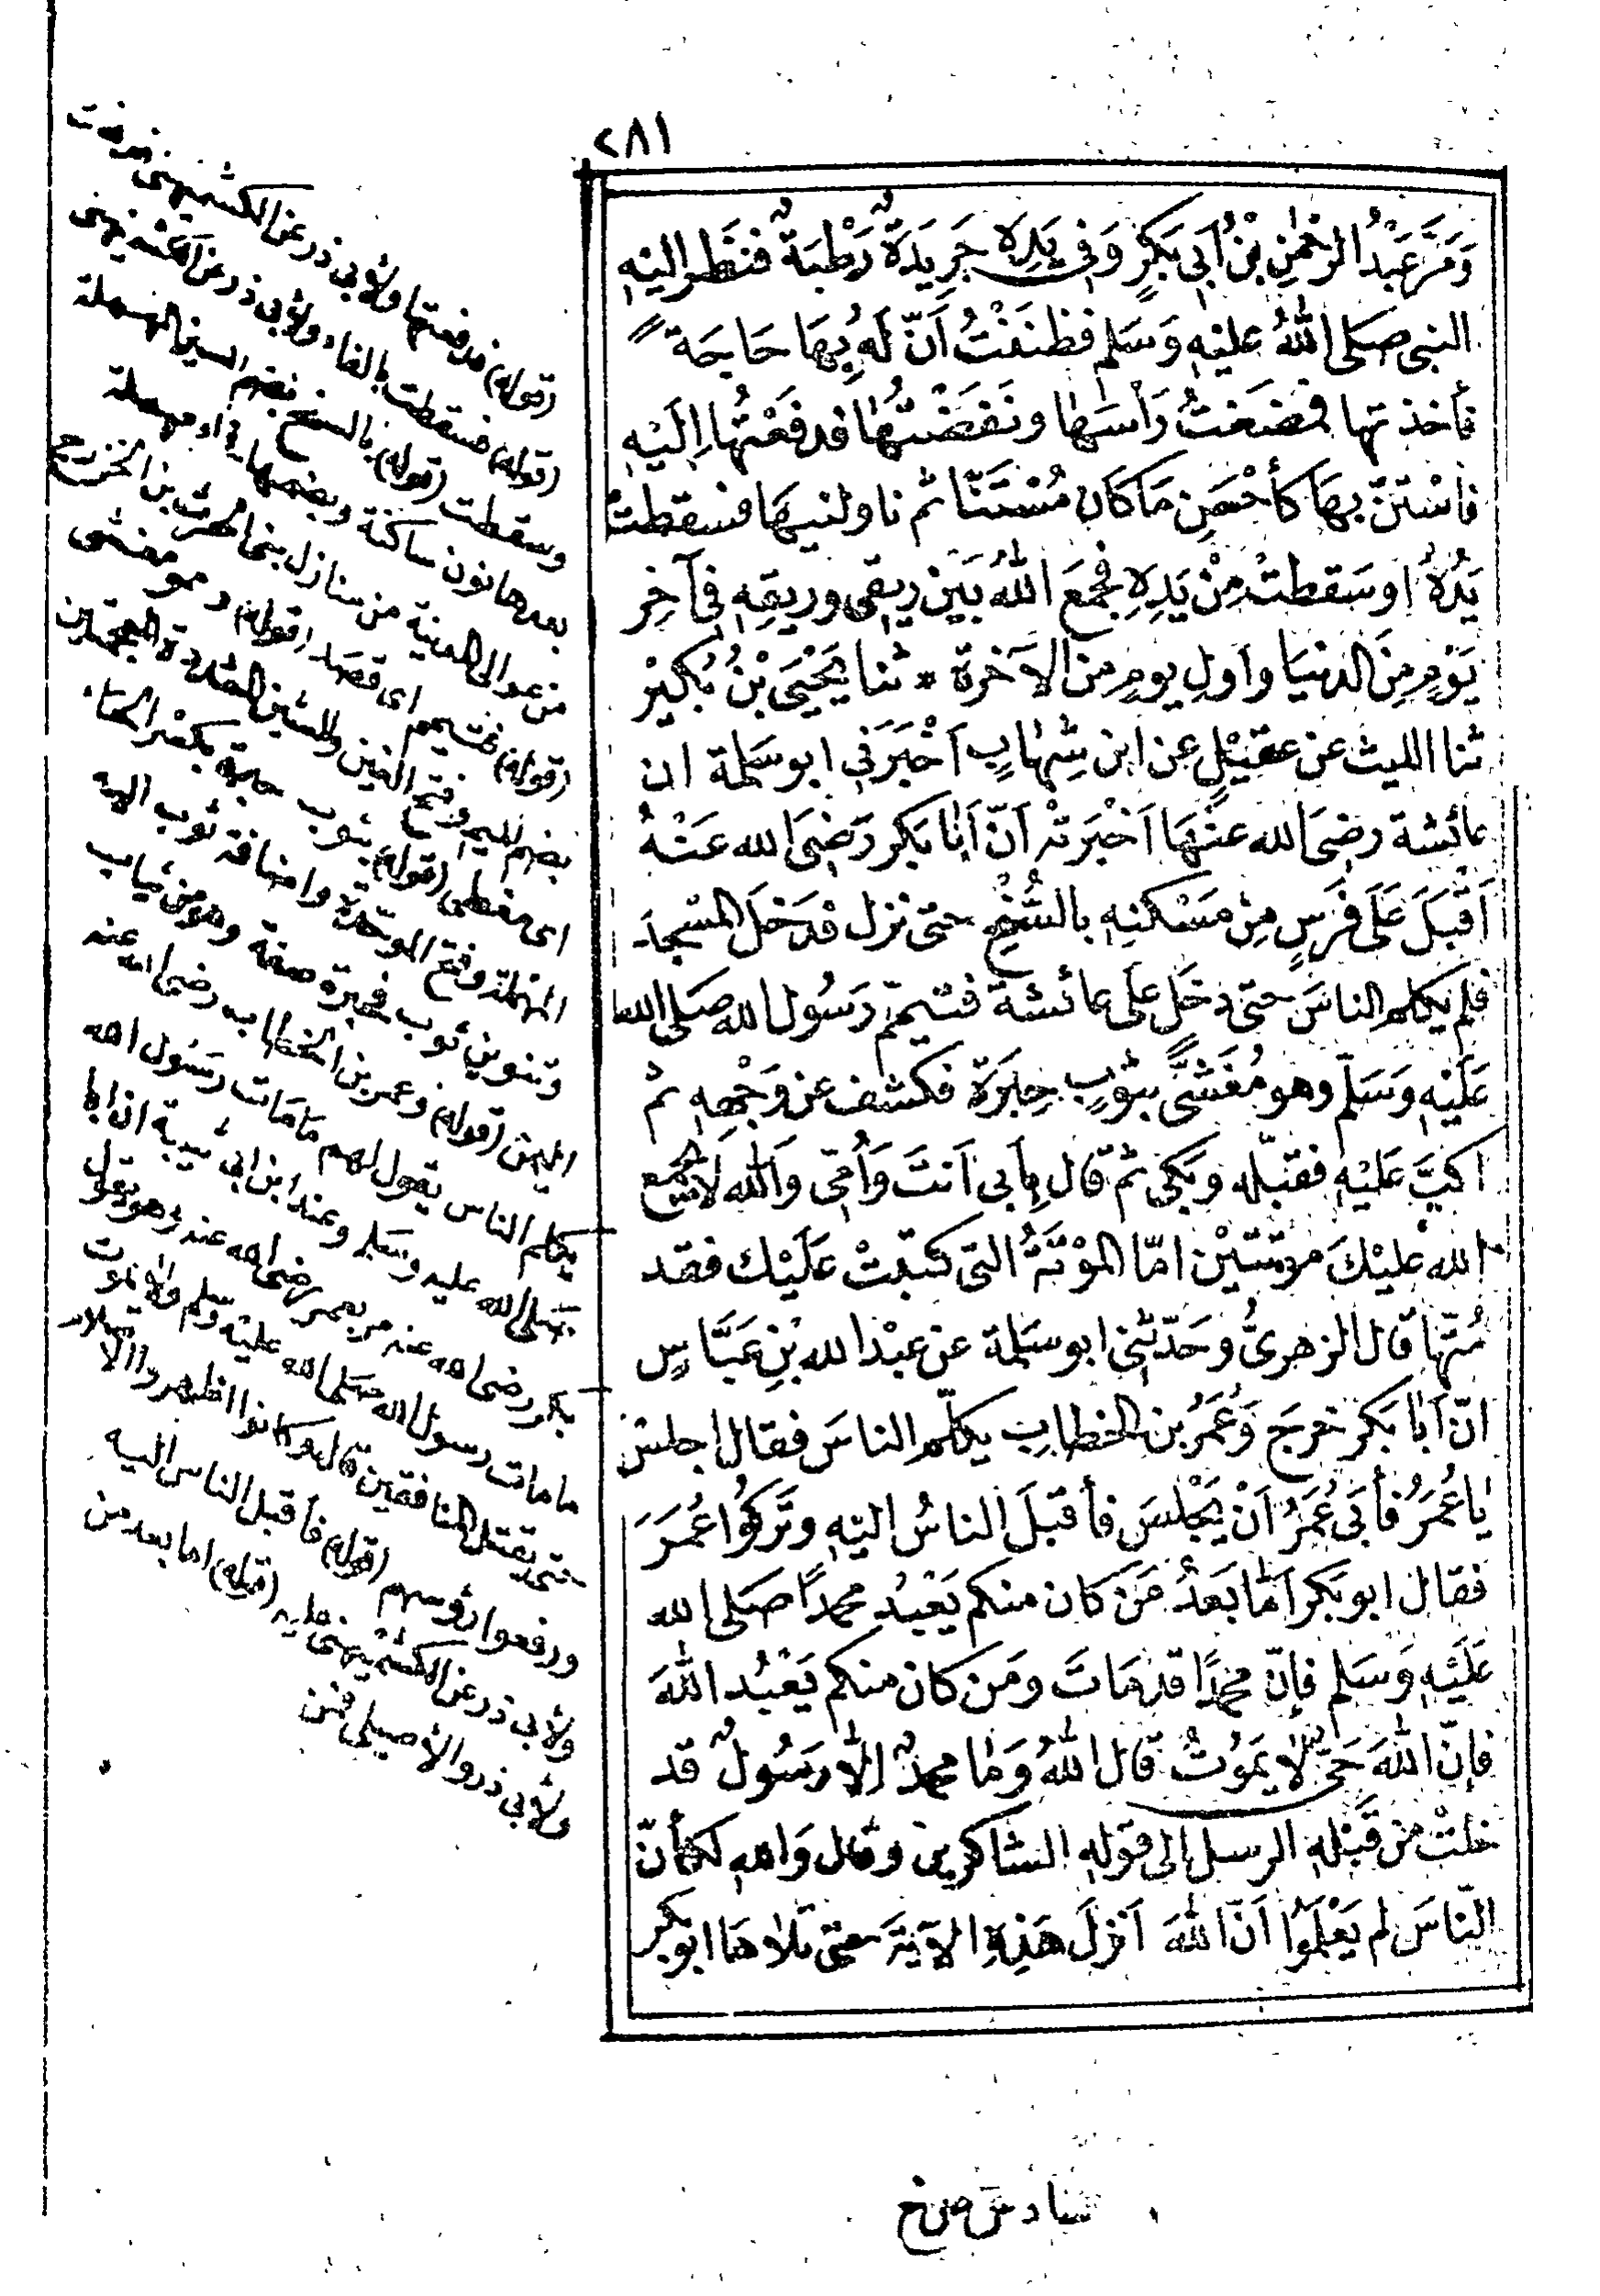 ٢٨١
وَمَرَّ عَبْدُ الرَّحْمٰنِ بْنُ اَبِي بَكْرٍ وَفِي يَدِهِ جَرِيدَةٌ رَطْبَةٌ فنَظَر اليْهِ
النبى صَلى اللهُ عليْهِ وَسَلم فظنَنْتُ اَنّ لَهُ بِهَا حَاجَةً
فأخذتها فمضَغتُ رَأسَهَا ونَفَضْتُهَا فدفَعْتُهَا اِلَيْهِ
فاسْتنّ بهَا كأحْسَنِ مَا كَانَ مُسْتَنّا ثم ناولنيهَا فسقطتْ
يَدُهُ اوسَقطتْ مِنْ يَدِهِ فجمَعَ اللهُ بَيْنَ رِيقِى وريقِهِ فى آخِرِ
يَوْمٍ مِنَ الدنيَا واَولِ يومٍ من الآخرة * ثنا يَحْيَى بْنُ بُكَيْرٍ
ثنا الليث عن عقيْلٍ عن ابن شِهَابٍ اَخْبَرَنِي ابوسَلمة ان
عائشة رضِىَ الله عنهَا اَخْبرَتْهُ اَنّ اَبَا بَكر رَضِىَ الله عَنْهُ
اَقْبَلَ عَلَى فَرَسٍ مِنْ مَسْكنِهِ بالسُّنْحِ حتى نزل فدَخَلَ المَسْجِدَ
فلم يكلم الناسَ حتى دخَل عَلى عائشة فتيمّم رَسُول الله صَلى الله
عَلَيْهِ وَسَلّم وهو مُغَشًّى بثوْبِ حِبَرَة فكشف عن وَجْهِهِ ثم
اكبّ عَلَيْهِ فقبّله وبَكى ثم قال بِأبى اَنتَ وَاُمّى وَاللهِ لا يَجْمَع
اللهُ عليْكَ موْتتيْن امّا المَوْتَةُ التى كتبَتْ عَلَيْك فقد
مُتّهَا قال الزهرىُّ وحَدّثنِى ابوسَلمة عن عبْدالله بْنِ عَبَّاسٍ
انّ اَبَا بَكر خرجَ وَعُمَرُ بن الخطابِ يكلّم الناسَ فقال اجلِسْ
يَا عُمَرُ فأبَى عُمَرُ اَنْ يَجْلسَ فأقبَلَ الناسُ اليْهِ وتَرَكُوا عُمَرَ
فقال ابو بَكر اَمّا بَعدُ مَن كان منكم يَعْبُد محمدًا صَلى الله
عَلَيْهِ وَسَلم فإنّ محمدًا قد مَاتَ ومَن كان منكم يَعْبُد اللهَ
فإنّ اللهَ حَىّ لا يمَوُتُ قال اللهُ وَمَا محمدٌ اِلّا رسُولٌ قد
خلتْ من قَبْلهِ الرسل الى قوله الشاكرين وقال وَاللهِ لكأنّ
النّاسَ لم يَعْلمَوُا اَنّ اللهَ اَنزلَ هَذِهِ الآيَةَ حتى تلاهَا ابوبكر
(قوله) فدفعتها ولأبى ذر عن الكشميهنى فدفعت
(قوله) فسقطت بالفاء ولأبى ذر عن الكشميهنى
وسقطت (قوله) بالسنح بضم السين المهملة
بعدها نون ساكنة وبضمها فحاء مهملة
من عوالى المدينة من منازل بنى الحرث بن الخزرج
(قوله) فتيمم اى قصد (قوله) وهو مغشى
بضم الميم وفتح الغين والشين المشددة المعجمتين
اى مغطى (قوله) بثوب حبرة بكسر الحاء
المهملة وفتح الموحدة واضافة ثوب اليه
وتنوين ثوب فحبرة صفة وهو من ثياب
اليمن (قوله) وعمر بن الخطاب رضى الله عنه
يكلم الناس يقول لهم مَا مَات رسُول الله
صَلى الله عليه وسلم وعند ابن ابى شيبة ان ابا
بكر رضى الله عنه مر بعمر رضى الله عنه وهو يقول
ما مات رسول الله صلى الله عليه وسلم ولا يموت
حتى يقتل المنافقين قال وكانوا اظهروا الاستبشار
ورفعوا رؤسهم (قوله) فأقبل الناس اليه
ولأبى ذر عن الكشميهنى عليه (قوله) اما بعد من
ولأبى ذر والأصيلى فمن
سادس من خ